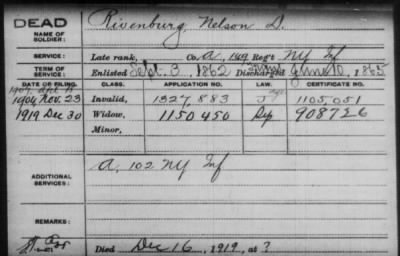 DEAD
NAME OF SOLDIER: Rivenburg, Nelson D.
SERVICE: Late rank, Co. A, 149 Reg't NY Inf
TERM OF SERVICE: Enlisted Sept. 3, 1862 Discharged June 10, 1865
DATE OF FILING. CLASS. APPLICATION NO. LAW. CERTIFICATE NO.
1904 Nov. 23 Invalid, 1327,883 1105,051
1919 Dec 30 Widow, 1150450 908726
Minor,
ADDITIONAL SERVICES: A, 102 NY Inf
REMARKS:
Died Dec 16, 1919, at ?